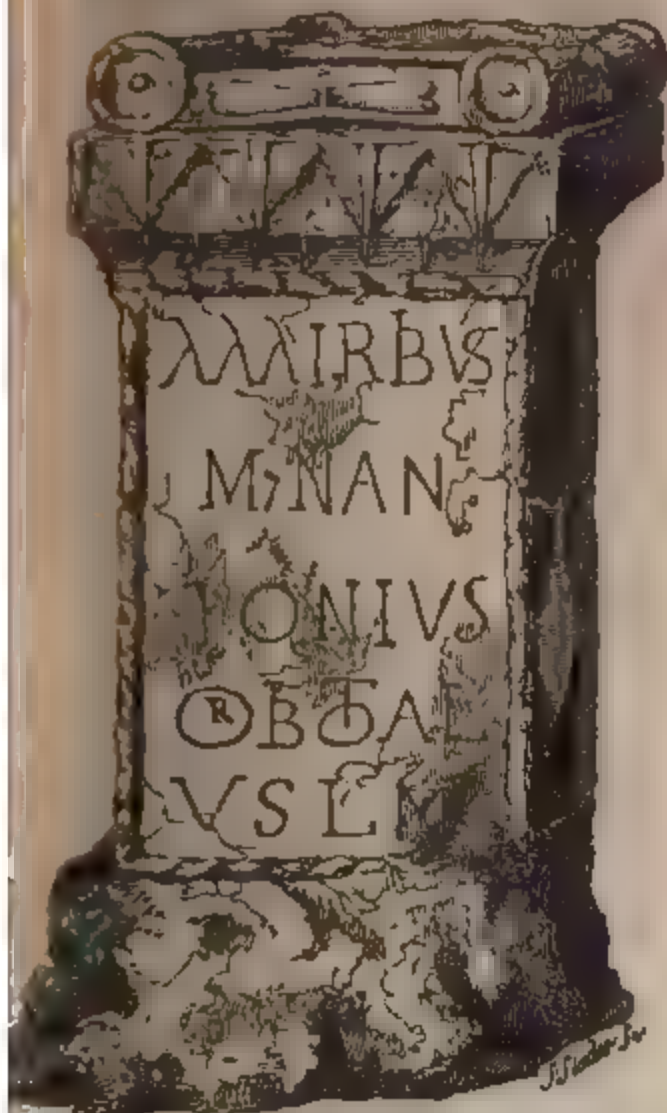 MAIRBVS
M, NAN
IONIVS
ORBTOAL
VSLM